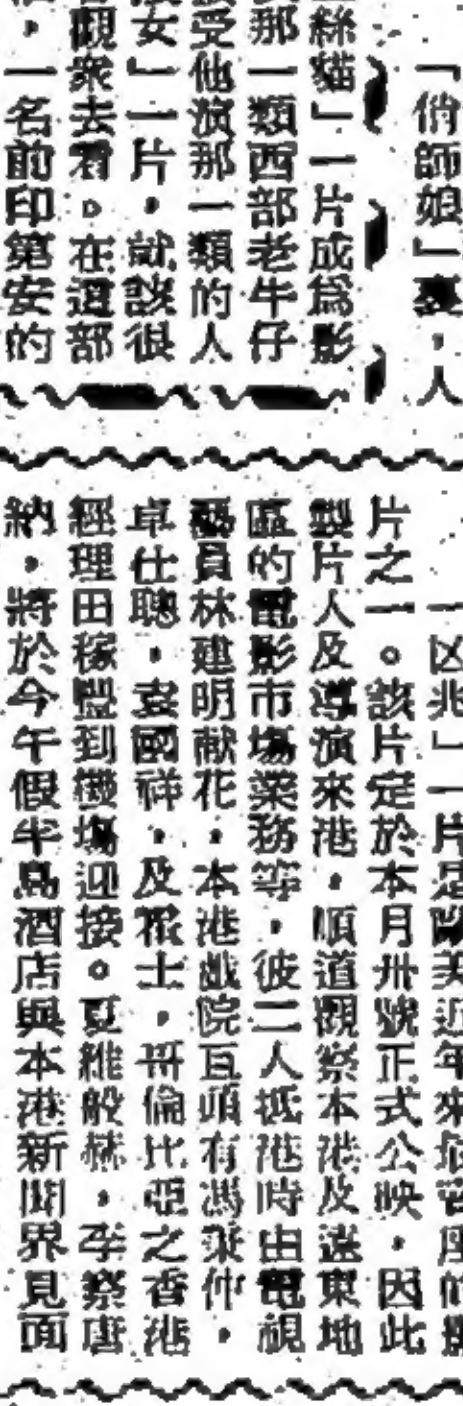 「俏師娘」裏,人
絲貓」一片成爲影
那一類西部老牛仔
受他演那一類的人
女」一片,就該很
觀衆去看。在這部
,一名前印第安的
「凶兆」一片是歐美近年來最賣座的
片之一。該片定於本月卅號正式公映,因此
製片人及導演來港,順道觀察本港及遠東地
區的電影市場業務等,彼二人抵港時由電視
藝員林建明献花,本港戲院巨頭有馮秉仲,
卓仕聰,袁國祥,及衆士,哥倫比亞之香港
經理田稼豐到機場迎接。夏維般赫,李察唐
納,將於今午假半島酒店與本港新聞界見面